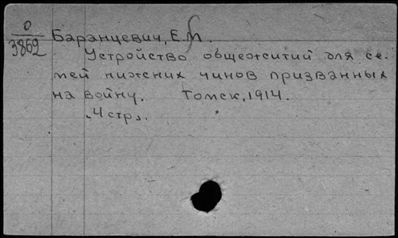 0
3862
Баранцевич, Е.М.
Устройство общежитий для се-
мей нижних чинов призванных
на войну. Томск, 1914.
4 стр.